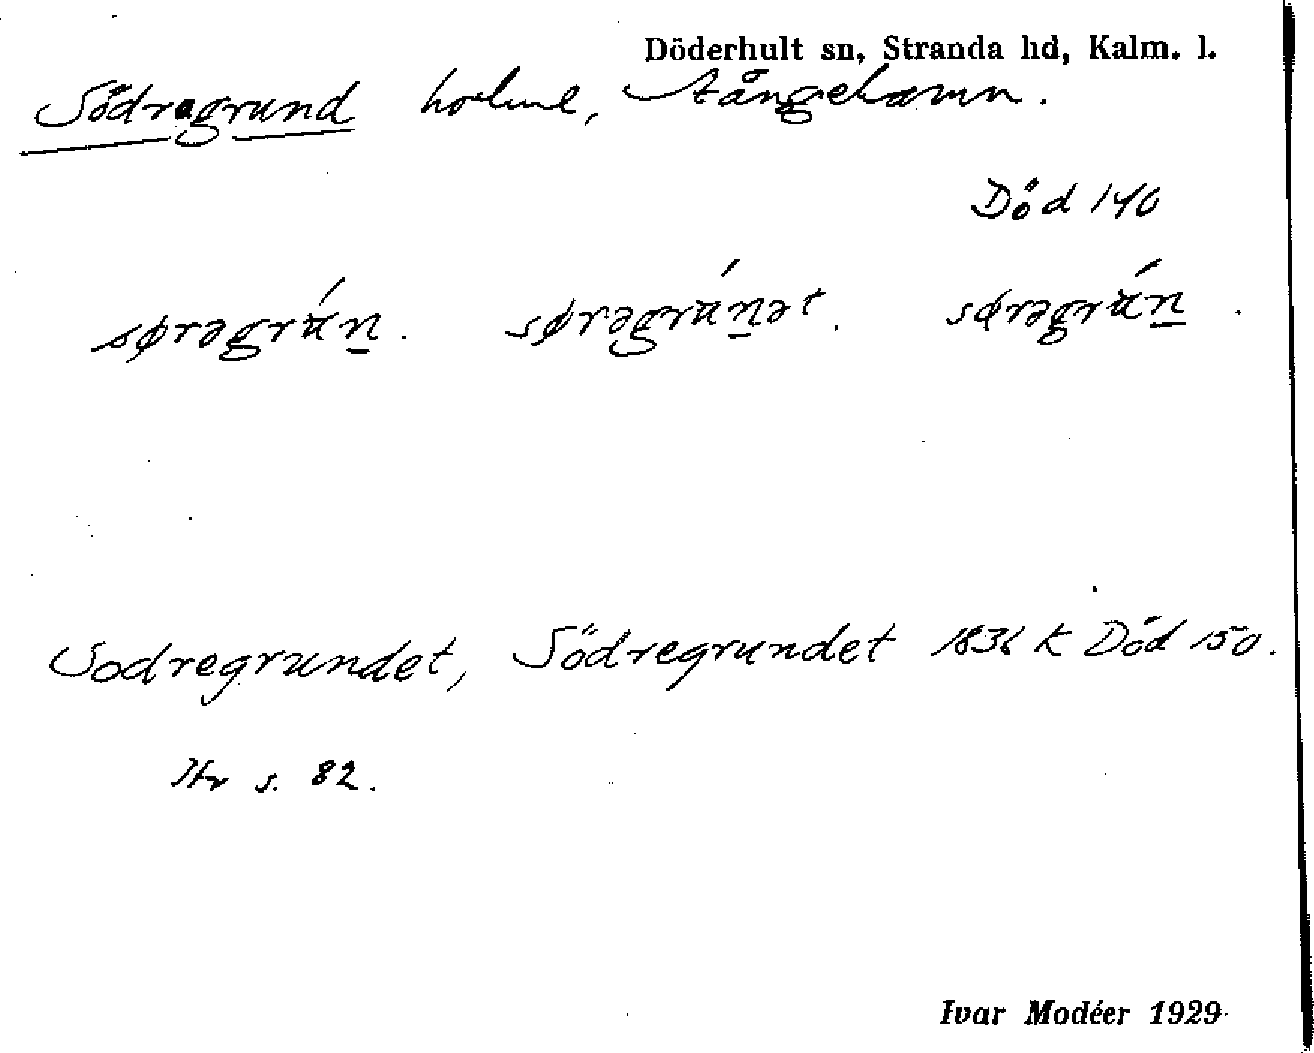 Döderhult sn, Stranda hd, Kalm. l.
Södregrund holme, Stångehamn.
Död 140
sørəgrún̲. sørəgrún̲ət. sørəgrún̲.
Sodregrundet, Södregrundet 1836 K Död 150.
s. 82.
Ivar Modéer 1929